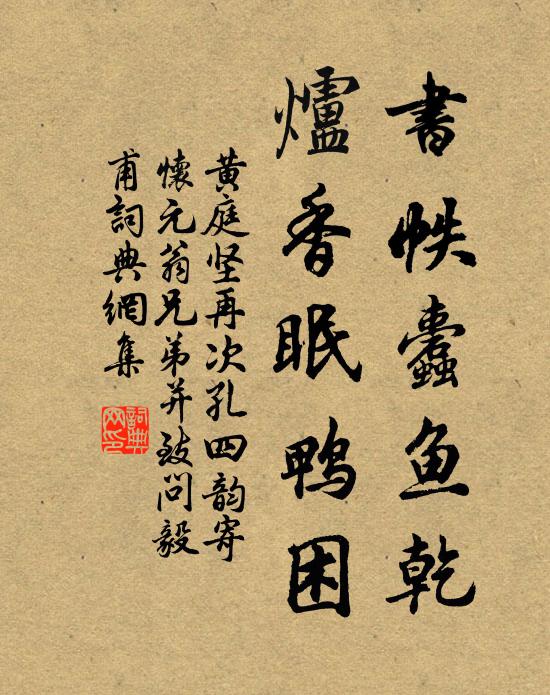 書帙蠹鱼乾
爐香眠鴨困
黄庭坚再次孔四韵寄
懷元翁兄弟并致问毅
甫詞典網集
詞典
网印